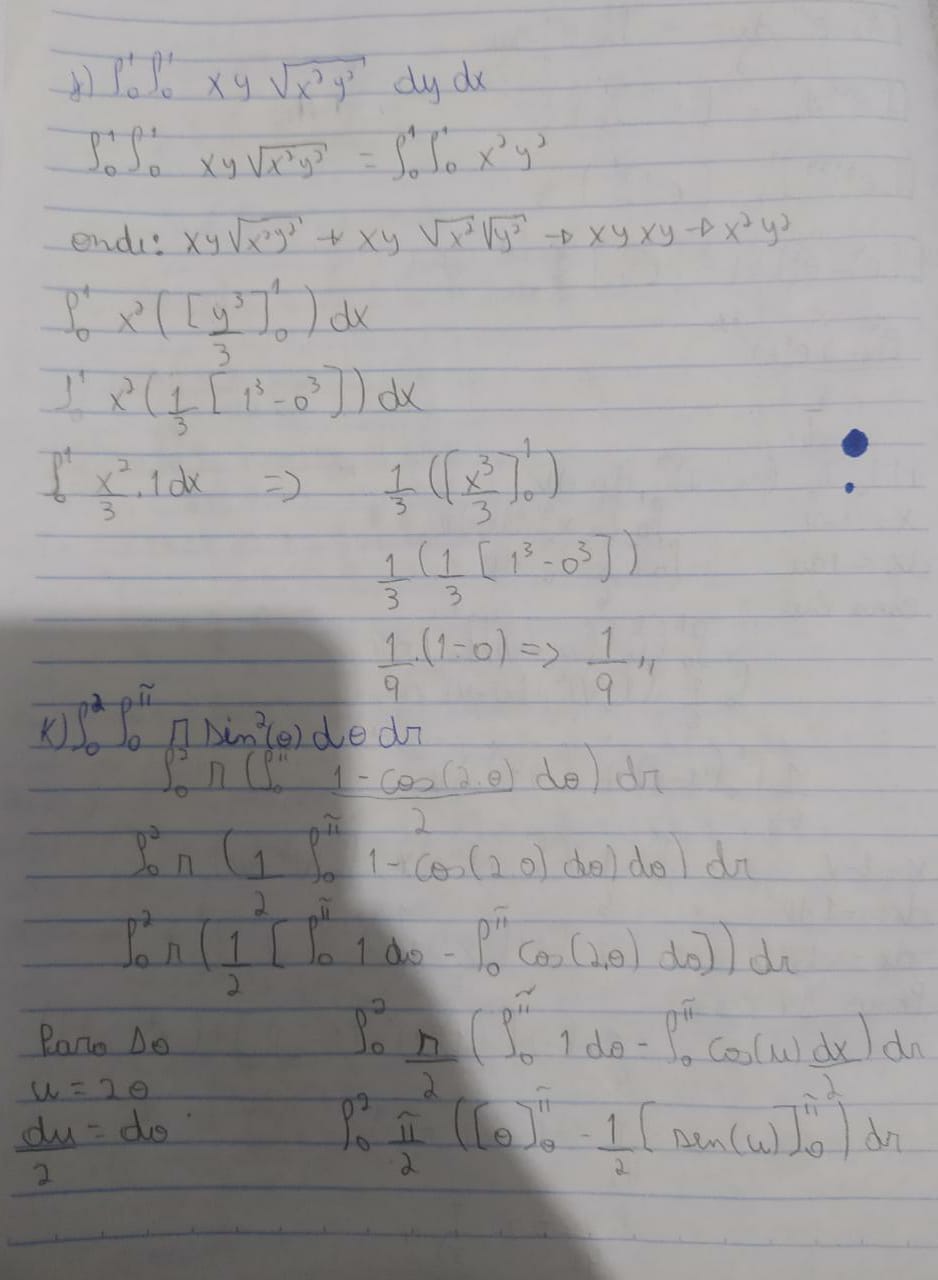 j) ∫₀¹ ∫₀¹ xy √(x²y²) dy dx
∫₀¹ ∫₀¹ xy √(x²y²) = ∫₀¹ ∫₀¹ x²y²
onde: xy √(x²y²) → xy √x² √y² → xy xy → x²y²
∫₀¹ x² ([y³/3]₀¹) dx
∫¹ x² (1/3 [1³-0³]) dx
∫₀¹ x²/3 . 1 dx => 1/3 ([x³/3]₀¹)
1/3 (1/3 [1³-0³])
1/9 . (1-0) => 1/9 ,,
K) ∫₀² ∫₀^π r sin²(θ) dθ dr
∫₀² r (∫₀^π (1-cos(2.θ))/2 dθ) dr
∫₀² r (1/2 ∫₀^π 1-cos(2θ) dθ) dθ) dr
∫₀² r (1/2 [∫₀^π 1 dθ - ∫₀^π cos(2θ) dθ]) dr
Para Δθ ∫₀² r/2 (∫₀^π 1 dθ - ∫₀^π cos(u) dx/2) dr
u = 2θ
du/2 = dθ ∫₀² π/2 ([θ]₀^π - 1/2 [sen(u)]₀^π) dr